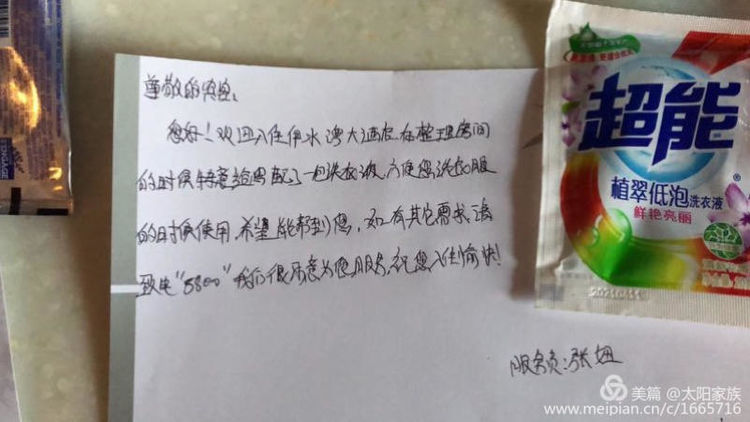 尊敬的宾客:
您好!欢迎入住伊水湾大酒店在整理房间
的时候特意给您配了一包洗衣液,方便您洗衣服
的时候使用,希望能帮到您,如有其它需求,请
致电"8800"我们很愿意为您服务,祝您入住愉快!
服务员:张妞
超能
植翠低泡洗衣液
鲜艳亮丽
美篇 @太阳家族
www.meipian.cn/c/1665716